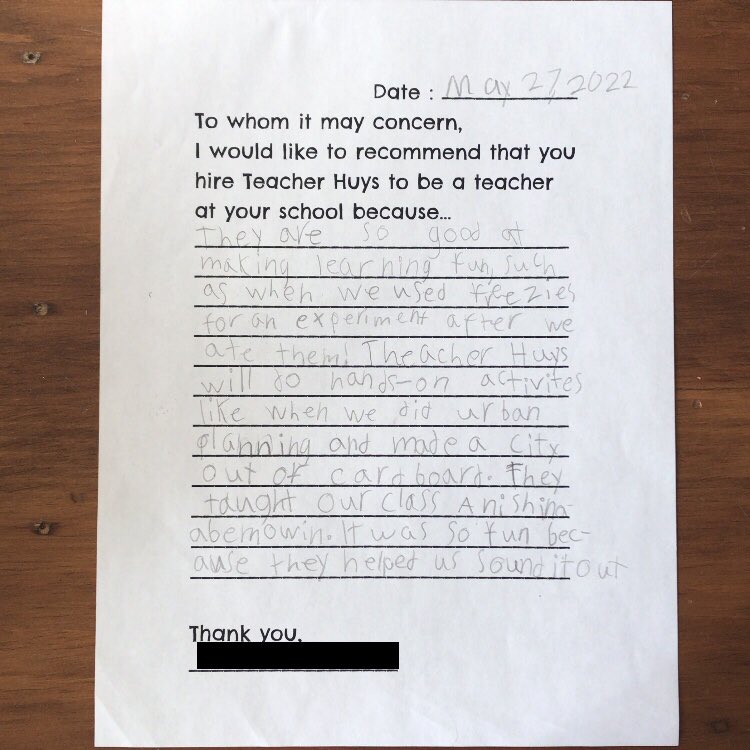 Date : May 27, 2022
To whom it may concern,
I would like to recommend that you
hire Teacher Huys to be a teacher
at your school because...
They are so good at
making learning fun, such
as when we used freezies
for an experiment after we
ate them! Theacher Huys
will do hands-on activites
like when we did urban
planning and made a city
out of cardboard. They
taught our class Anishin-
abemowin. It was so fun bec-
ause they helped us sound it out
Thank you,